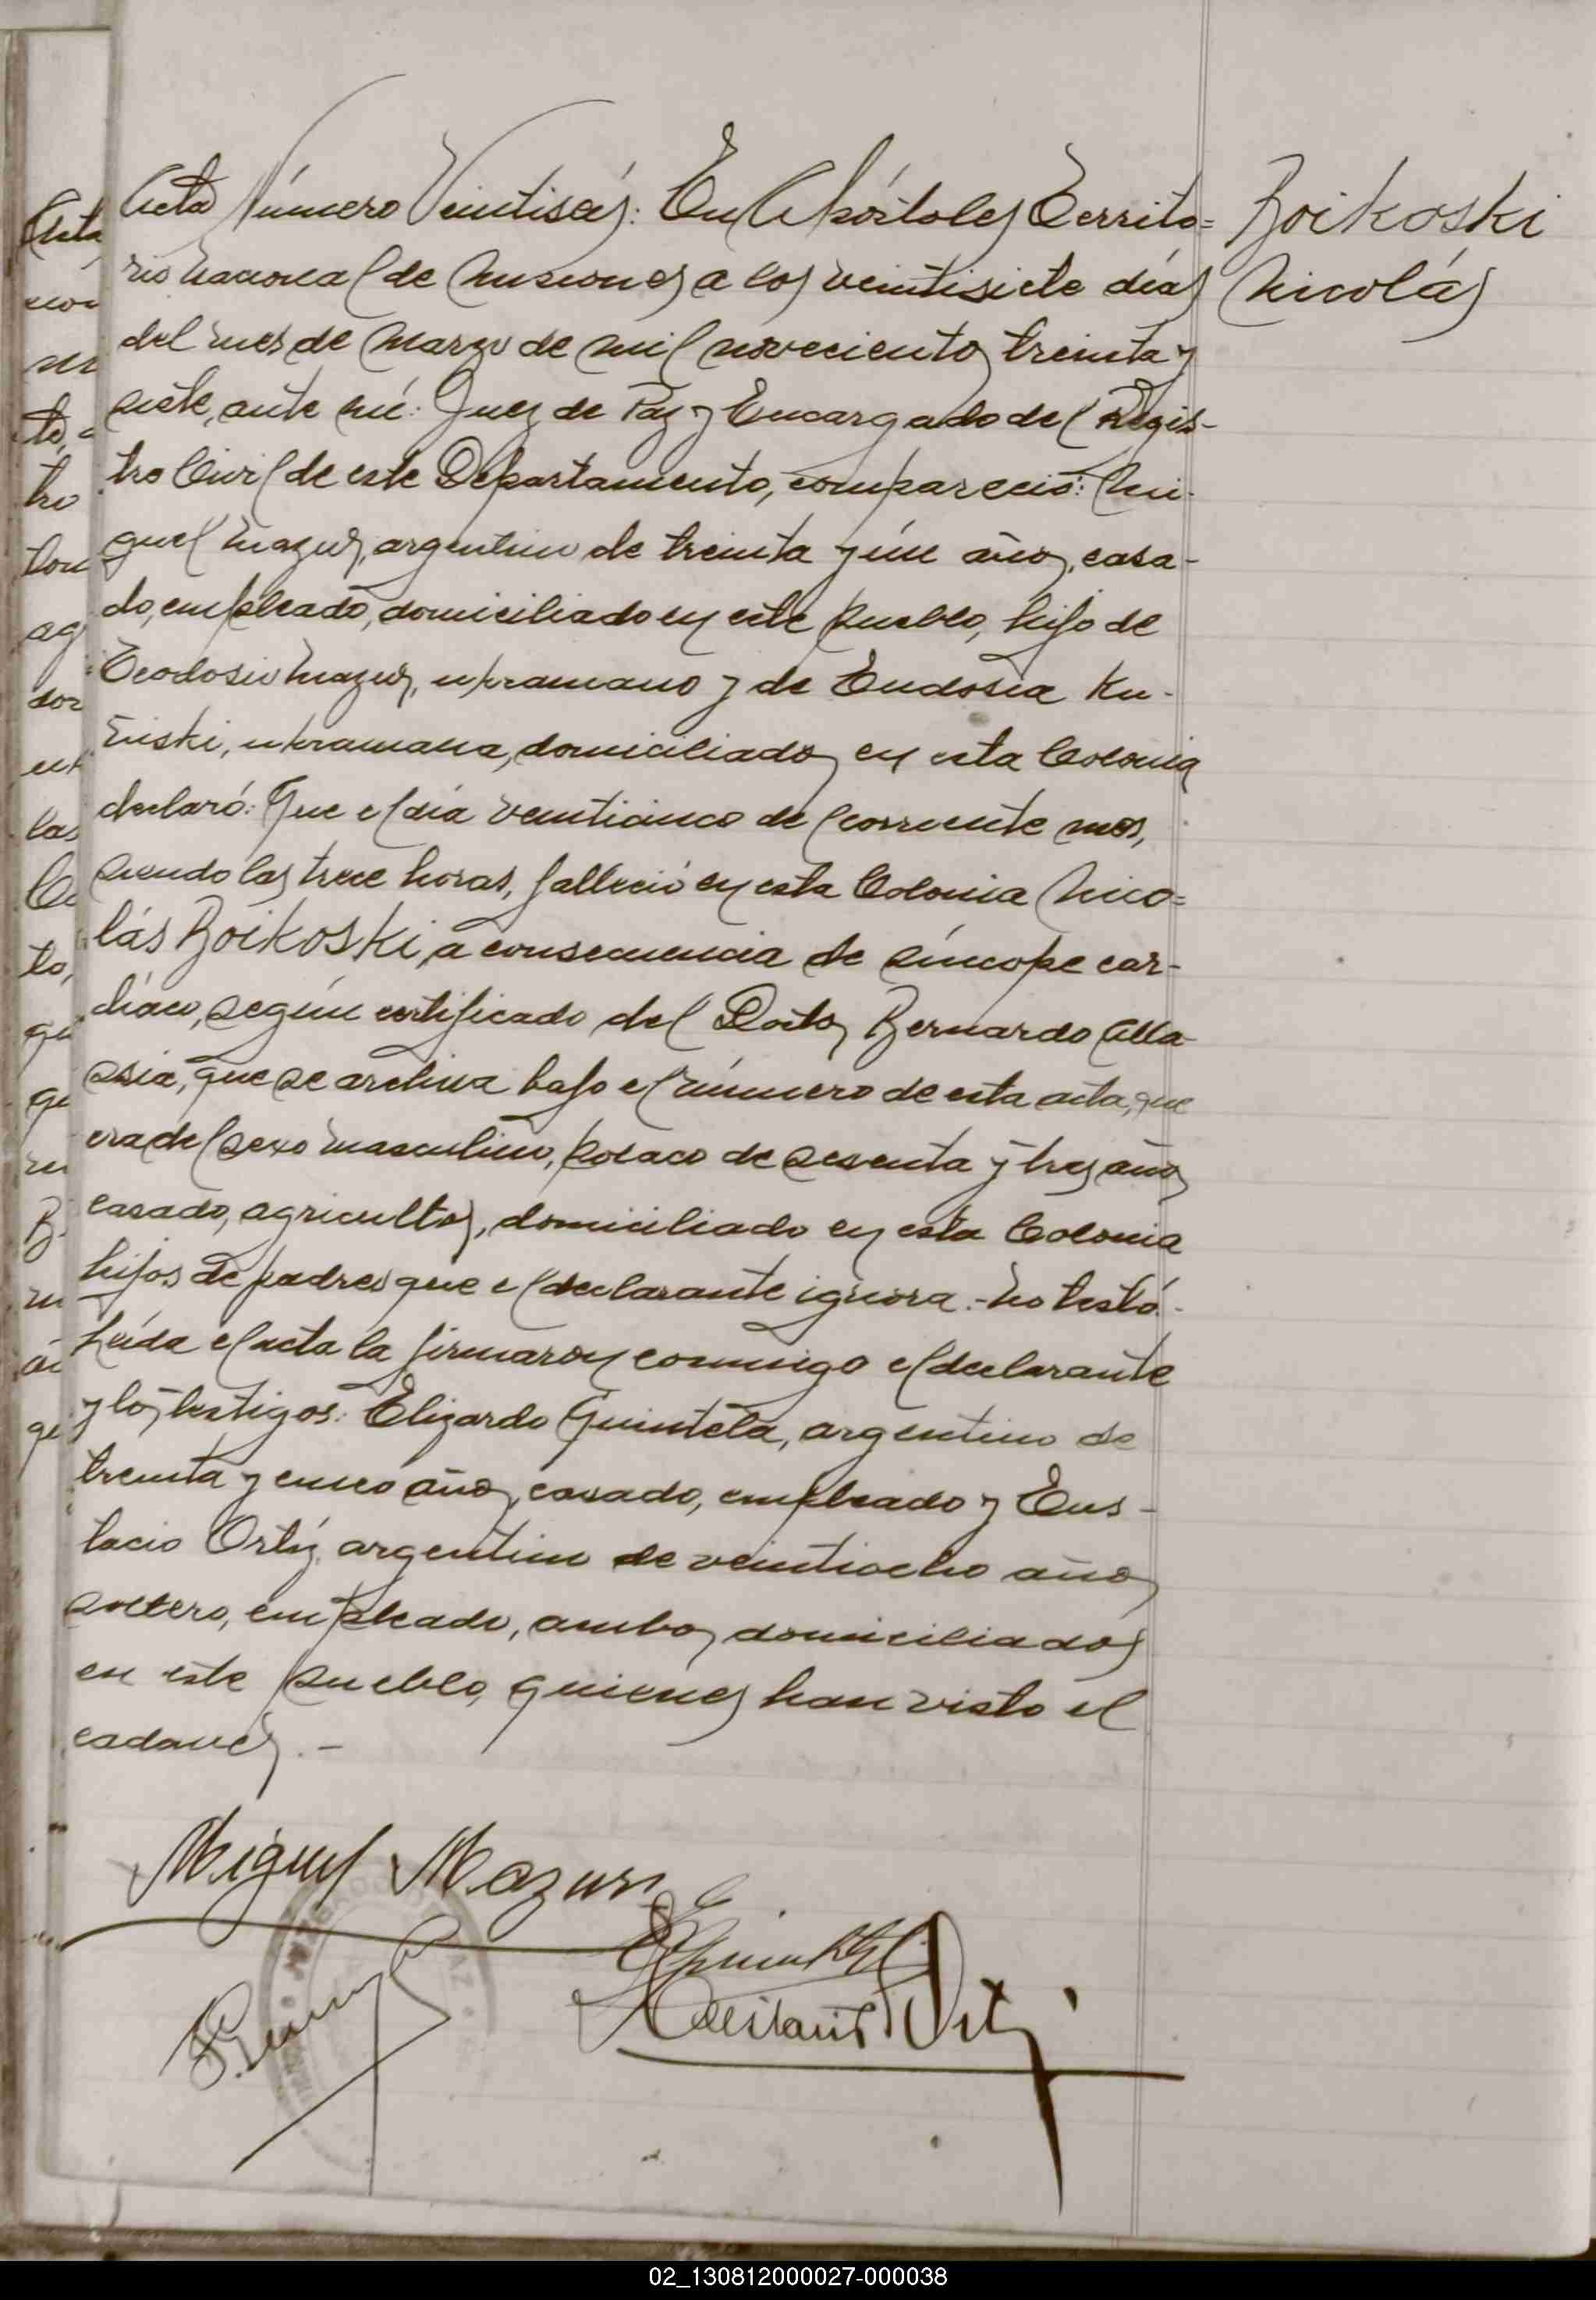 Acta Número Veintiseis: En Apóstoles Territo=
rio Nacional de Misiones a los veintisiete días
del mes de Marzo de mil novecientos treinta y
siete, ante mí: Juez de Paz y Encargado del Regis-
tro Civil de este Departamento, compareció: Mi-
guel Mazur, argentino de treinta y ún años, casa-
do, empleado, domiciliado en este pueblo, hijo de
Teodosio Mazur, ukraniano y de Eudosia Ku-
niski, ukraniana, domiciliados en esta Colonia
declaró: Que el día veinticinco del corriente mes,
siendo las trece horas, falleció en esta Colonia Nico=
lás Boikoski, a consecuencia de síncope car-
díaco, según certificado del Doctor Bernardo Alla-
ssia, que se archiva bajo el número de esta acta, que
era del sexo masculino, polaco de sesenta y tres años
casado, agricultor, domiciliado en esta Colonia
hijos de padres que el declarante ignora.- No testó.-
Leída el acta la firmaron conmigo el declarante
y los testigos: Elizardo Quintela, argentino de
treinta y cinco años, casado, empleado y Eus-
tacio Ortíz argentino de veintiocho años
soltero, empleado, ambos domiciliados
en este pueblo, quienes han visto el
cadaver.-
Boikoski
Nicolás
Miguel Mazur
02_130812000027-000038